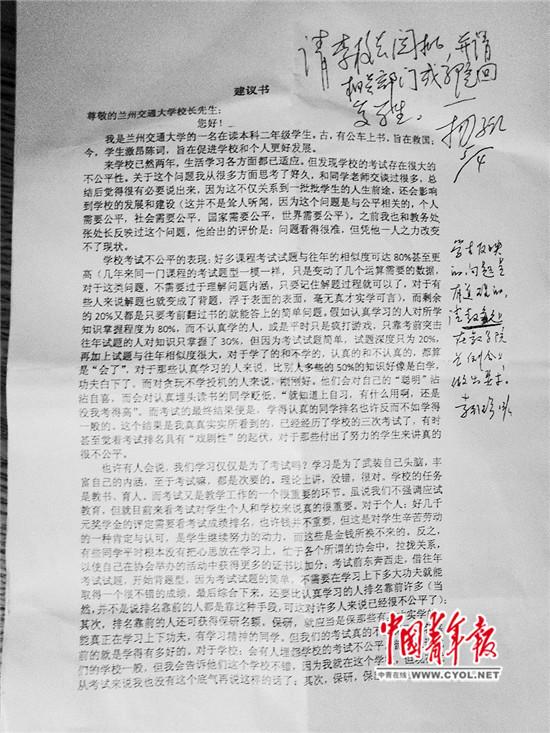 请李校长阅批,并请
相关部门或
学生。
5/4
建议书
尊敬的兰州交通大学校长先生:
您好!
我是兰州交通大学的一名在读本科二年级学生。古,有公车上书,旨在救国;
今,学生激昂陈词,旨在促进学校和个人更好发展。
来学校已然两年,生活学习各方面都已适应。但发现学校的考试存在很大的
不公平性。关于这个问题我从很多方面思考了好久,和同学老师交谈过很多,总
结后觉得很有必要说出来,因为这不仅关系到一批批学生的人生前途,还会影响
到学校的发展和建设(这并不是耸人听闻,因为这个问题是与公平相关的,个人
需要公平,社会需要公平,国家需要公平,世界需要公平)。之前我也和教务处
张处长反映过这个问题,他给出的评价是:问题看得很准,但凭他一人之力改变
不了现状。
学校考试不公平的表现:好多课程考试试题与往年的相似度可达 80%甚至更
高(几年来同一门课程的考试题型一模一样,只是变动了几个运算需要的数据,
对于这类问题,不需要过于理解问题内涵,只要记住解题过程就可以了,对于有
些人来说解题也就变成了背题,浮于表面的表面,毫无真才实学可言),而剩余
的 20%又都是只要考前翻过书的就能答上的简单问题。假如认真学习的人对所学
知识掌握程度为 80%,而不认真学的人,或是平时只是疯打游戏,只靠考前突击
往年试题的人对知识只掌握了 30%,但因为考试试题简单,试题深度只为 20%,
再加上试题与往年相似度很大,对于学了的和不学的,认真的和不认真的,都算
是“会了”,对于那些认真学习的人来说,比别人多些的 50%的知识好像是白学,
功夫白下了。而对贪玩不学投机的人来说,刚刚好。他们会对自己的“聪明”沾
沾自喜,而会对认真埋头读书的同学贬低,“就知道上自习,有什么用啊,还是
没我考得高”。而考试的最终结果便是,学得认真的同学排名也许反而不如学得
一般的。这个结果是我真真实实所看到的,已经经历了学校的三次考试了,有时
甚至觉着考试排名具有“戏剧性”的起伏,对于那些付出了努力的学生来讲真的
很不公平。
也许有人会说,我们学习仅仅是为了考试吗?学习是为了武装自己头脑,丰
富自己的内涵,至于考试嘛,都是次要的。理论上讲,没错,很对。学校的任务
是教书、育人。而考试又是教学工作的一个很重要的环节。虽说我们不强调应试
教育,但就目前来看考试对学生个人和学校来说真的很重要。对于个人:好几千
元奖学金的评定需要看考试成绩排名,也许钱并不重要,但这是对学生辛苦劳动
的一种肯定与认可,是学生继续努力的动力,而这些是金钱所换不来的。反之,
有些同学平时根本没有把心思放在学习上,忙于各个所谓的协会中,拉拢关系,
以使自己在协会举办的活动中获得更多的证书以加分;考试前东奔西走,借往年
考试试题,开始背题型,因为考试试题的简单,不需要在学习上下多大功夫就能
取得一个很不错的成绩,最后综合下来,还要比认真学习的人排名靠前许多(当
然,并不是说排名靠前的人都是靠这种手段,可这对许多人来说已经很不公平了);
其次,排名靠前的人还可获得保研名额。保研,就应当是保那些有
能真正在学习上下功夫,有学习精神的同学。但我们的考试真的不
前的就是学得有多好的。对于学校:会有人埋怨学校的考试不公平
们的学校一般,但我会告诉他们这个学校不错,因为我就在这个学校,但
从考试来说我也没有这个底气再说这样的话了;其次,保研,保
学生反映
的问题是
有道理的,
请教务处
在教学院
长例会上
做出要求。
中国青年报
中青在线 WWW.CYOL.NET